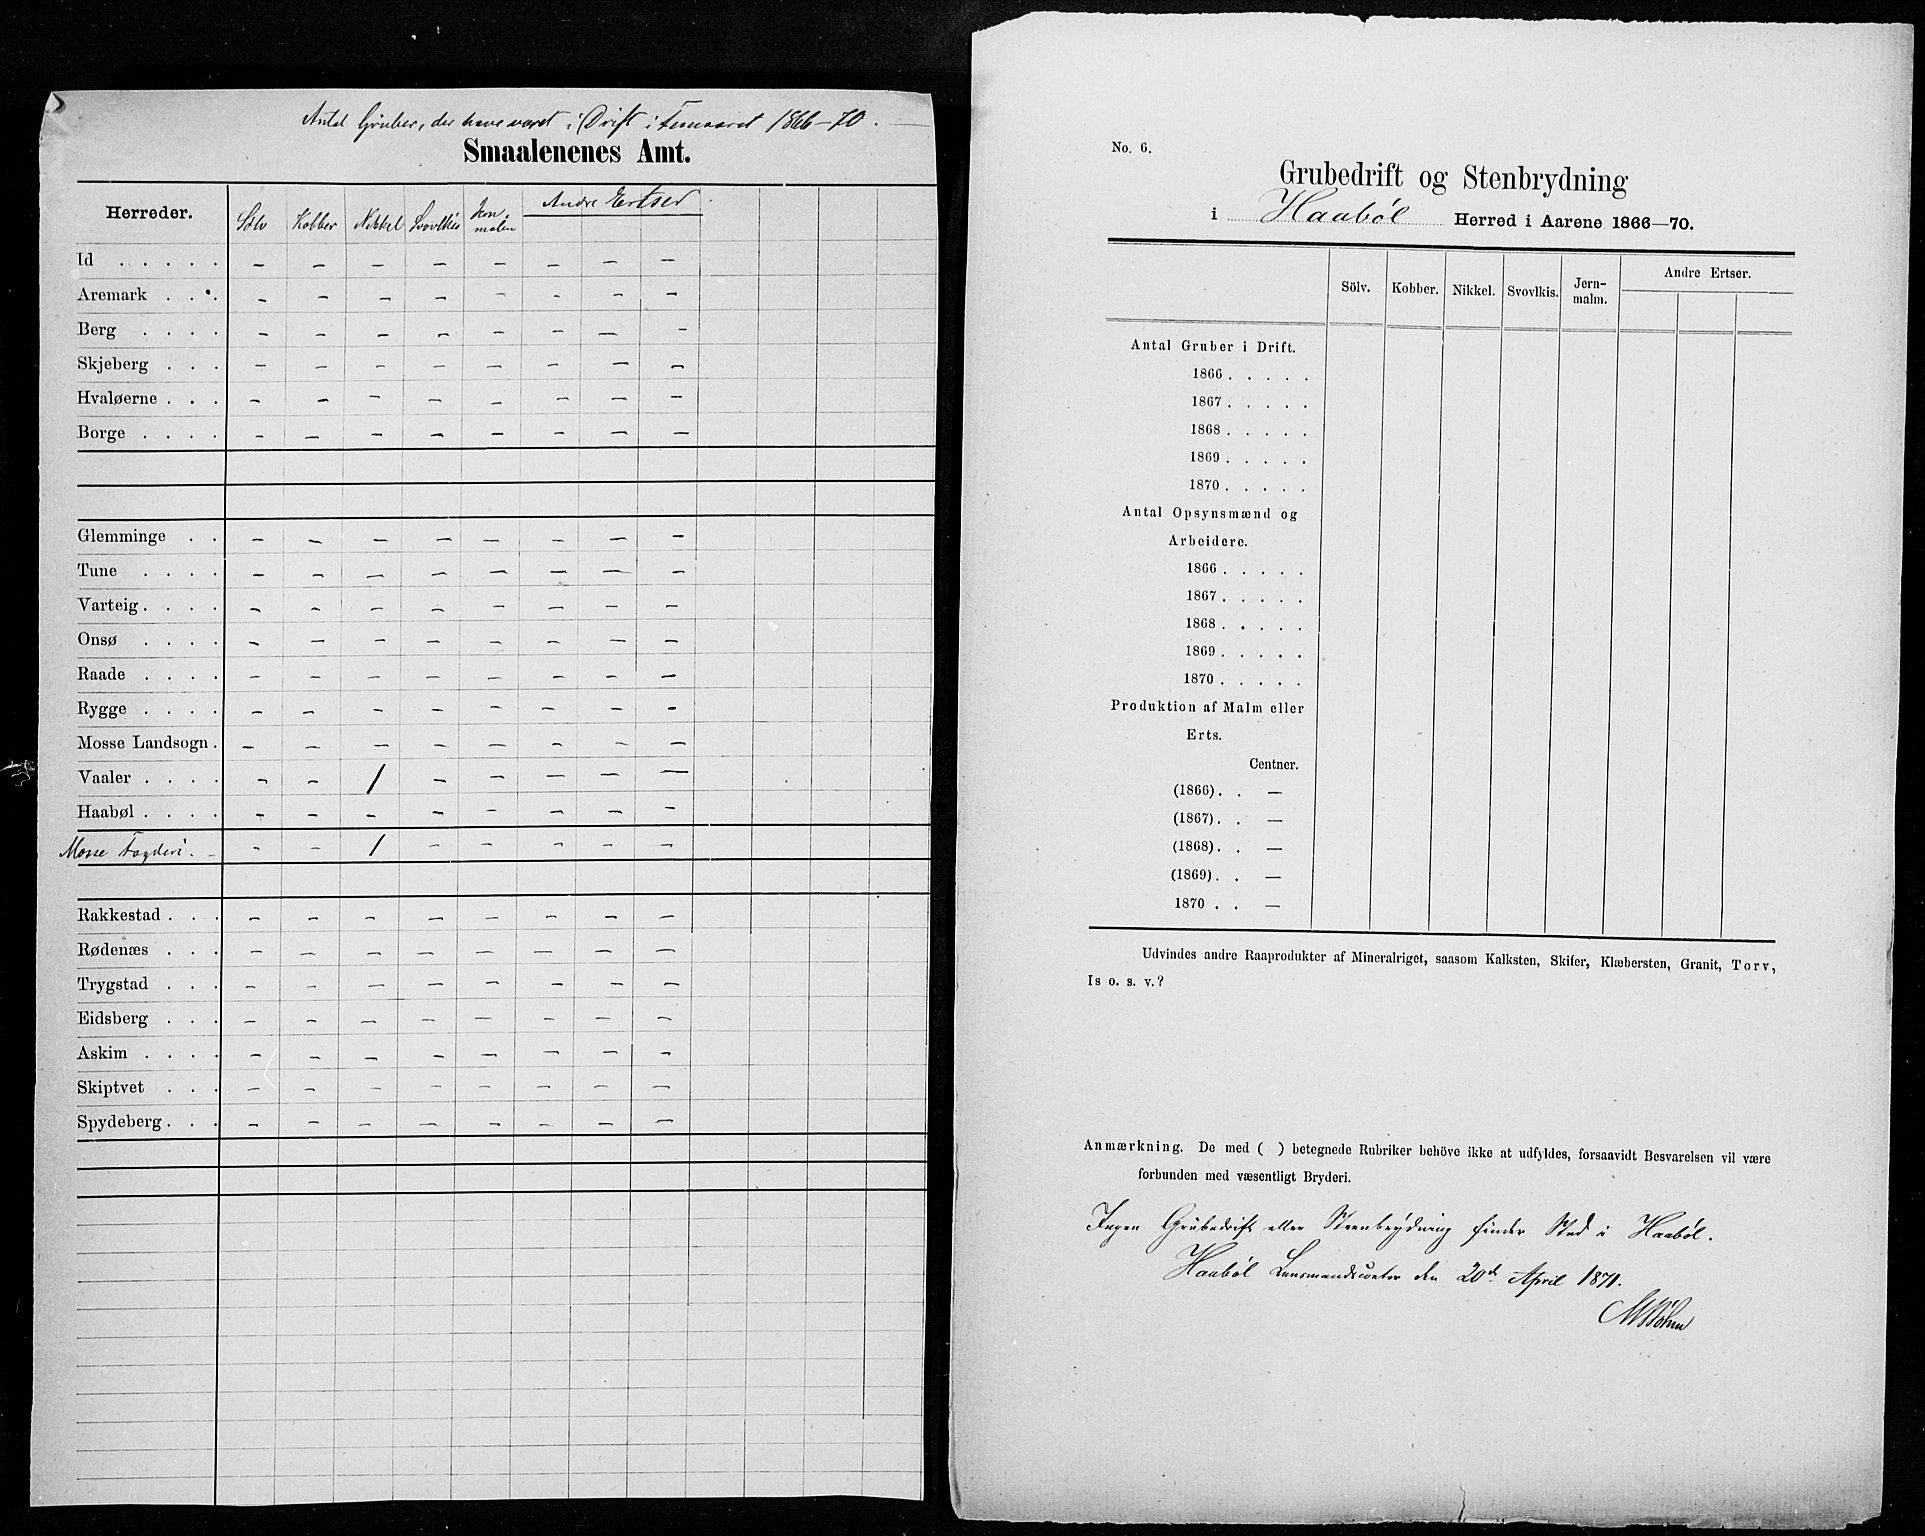 Antal Gruber, der have været i Drift i Femaaret 1866–70.
Smaalenenes Amt.
Herreder. Sölv Kobber Nikkel Svovlkis Jernmalm Andre Ertser
Id . . . . . – – – – – – – –
Aremark . . . – – – – – – – –
Berg . . . . – – – – – – – –
Skjeberg . . . – – – – – – – –
Hvaløerne . . . – – – – – – – –
Borge . . . . – – – – – – – –
Glemminge . . – – – – – – – –
Tune . . . . – – – – – – – –
Varteig . . . . – – – – – – – –
Onsø . . . . – – – – – – – –
Raade . . . . – – – – – – – –
Rygge . . . . – – – – – – – –
Mosse Landsogn . – – – – – – – –
Vaaler . . . . – – 1 – – – – –
Haabøl . . . . – – – – – – – –
Mosse Fogderi . – – – 1 – – – – –
Rakkestad . . . – – – – – – – –
Rødenæs . . . – – – – – – – –
Trygstad . . . – – – – – – – –
Eidsberg . . . – – – – – – – –
Askim . . . . – – – – – – – –
Skiptvet . . . – – – – – – – –
Spydeberg . . . – – – – – – – –
No. 6.
Grubedrift og Stenbrydning
i Haabøl Herred i Aarene 1866—70.
Sölv. Kobber. Nikkel. Svovlkis. Jern-malm. Andre Ertser.
Antal Gruber i Drift.
1866 . . . . .
1867 . . . . .
1868 . . . . .
1869 . . . . .
1870 . . . . .
Antal Opsynsmænd og
Arbeidere.
1866 . . . . .
1867 . . . . .
1868 . . . . .
1869 . . . . .
1870 . . . . .
Produktion af Malm eller
Erts.
Centner.
(1866) . . —
(1867) . . —
(1868) . . —
(1869) . . —
1870 . . —
Udvindes andre Raaprodukter af Mineralriget, saasom Kalksten, Skifer, Klæbersten, Granit, Torv,
Is o. s. v.?
Anmærkning. De med ( ) betegnede Rubriker behöve ikke at udfyldes, forsaavidt Besvarelsen vil være
forbunden med væsentligt Bryderi.
Ingen Grubedrift eller Steenbrydning finder Sted i Haabøl.
Haabøl Lensmandscontor den 20de April 1871.